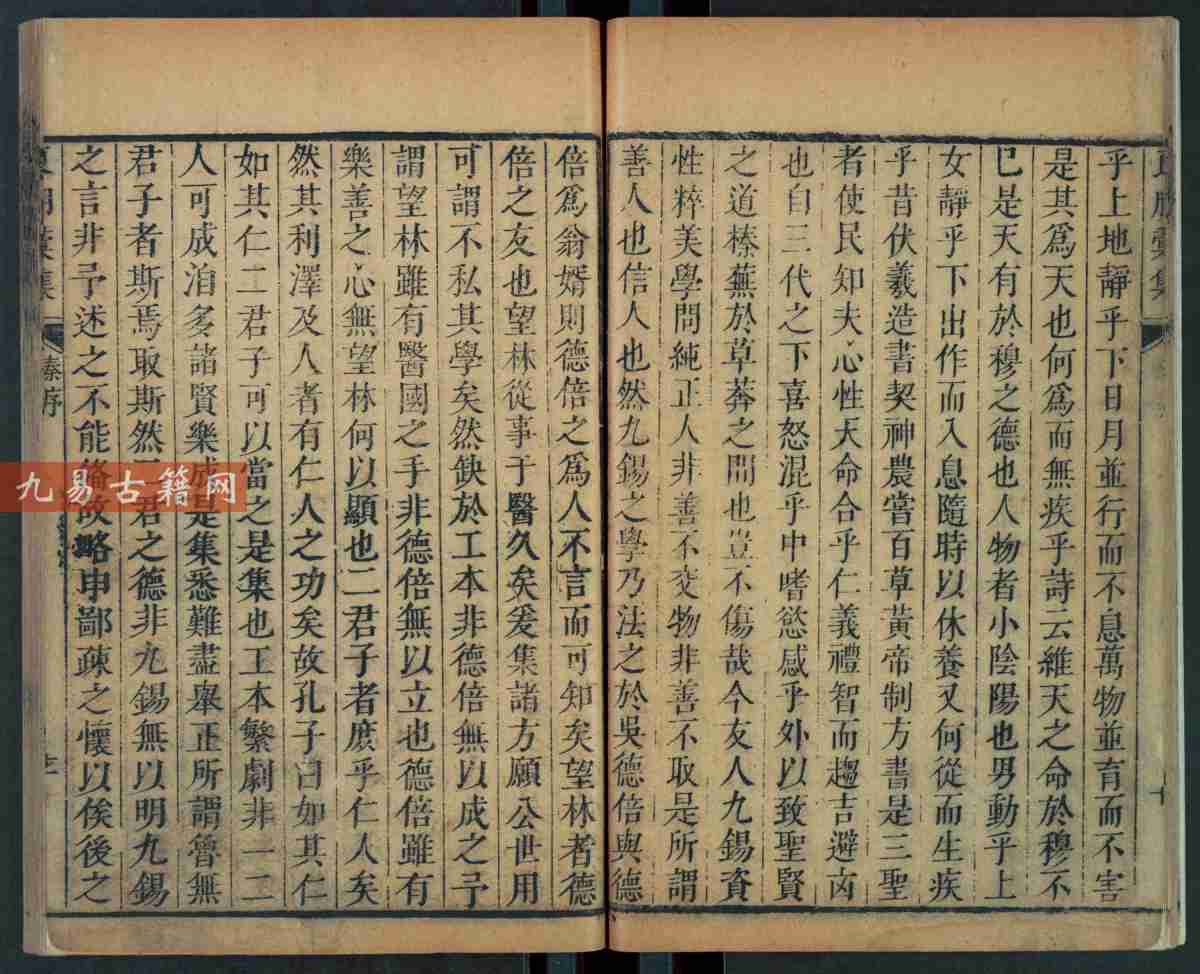 彙集
十
乎上地靜乎下日月並行而不息萬物並育而不害
是其爲天也何爲而無疾乎詩云維天之命於穆不
巳是天有於穆之德也人物者小陰陽也男動乎上
女靜乎下出作而入息隨時以休養又何從而生疾
乎昔伏羲造書契神農嘗百草黃帝制方書是三聖
者使民知夫心性天命合乎仁義禮智而趨吉避凶
也自三代之下喜怒混乎中嗜慾感乎外以致聖賢
之道榛蕪於草莽之間也豈不傷哉今友人九錫資
性粹美學問純正人非善不交物非善不取是所謂
善人也信人也然九錫之學乃法之於吳德倍與德
倍爲翁婿則德倍之爲人不言而可知矣望林者德
倍之友也望林從事于醫久矣爰集諸方願公世用
可謂不私其學矣然缺於工本非德倍無以成之予
謂望林雖有醫國之手非德倍無以立也德倍雖有
樂善之心無望林何以顯也二君子者庶乎仁人矣
然其利澤及人者有仁人之功矣故孔子曰如其仁
如其仁二君子可以當之是集也工本繁劇非一二
人可成洎多諸賢樂成是集悉難盡舉正所謂魯無
君子者斯焉取斯然二君之德非九錫無以明九錫
之言非予述之不能脩故略申鄙疎之懷以俟後之
集
秦序
十一
九易古籍网